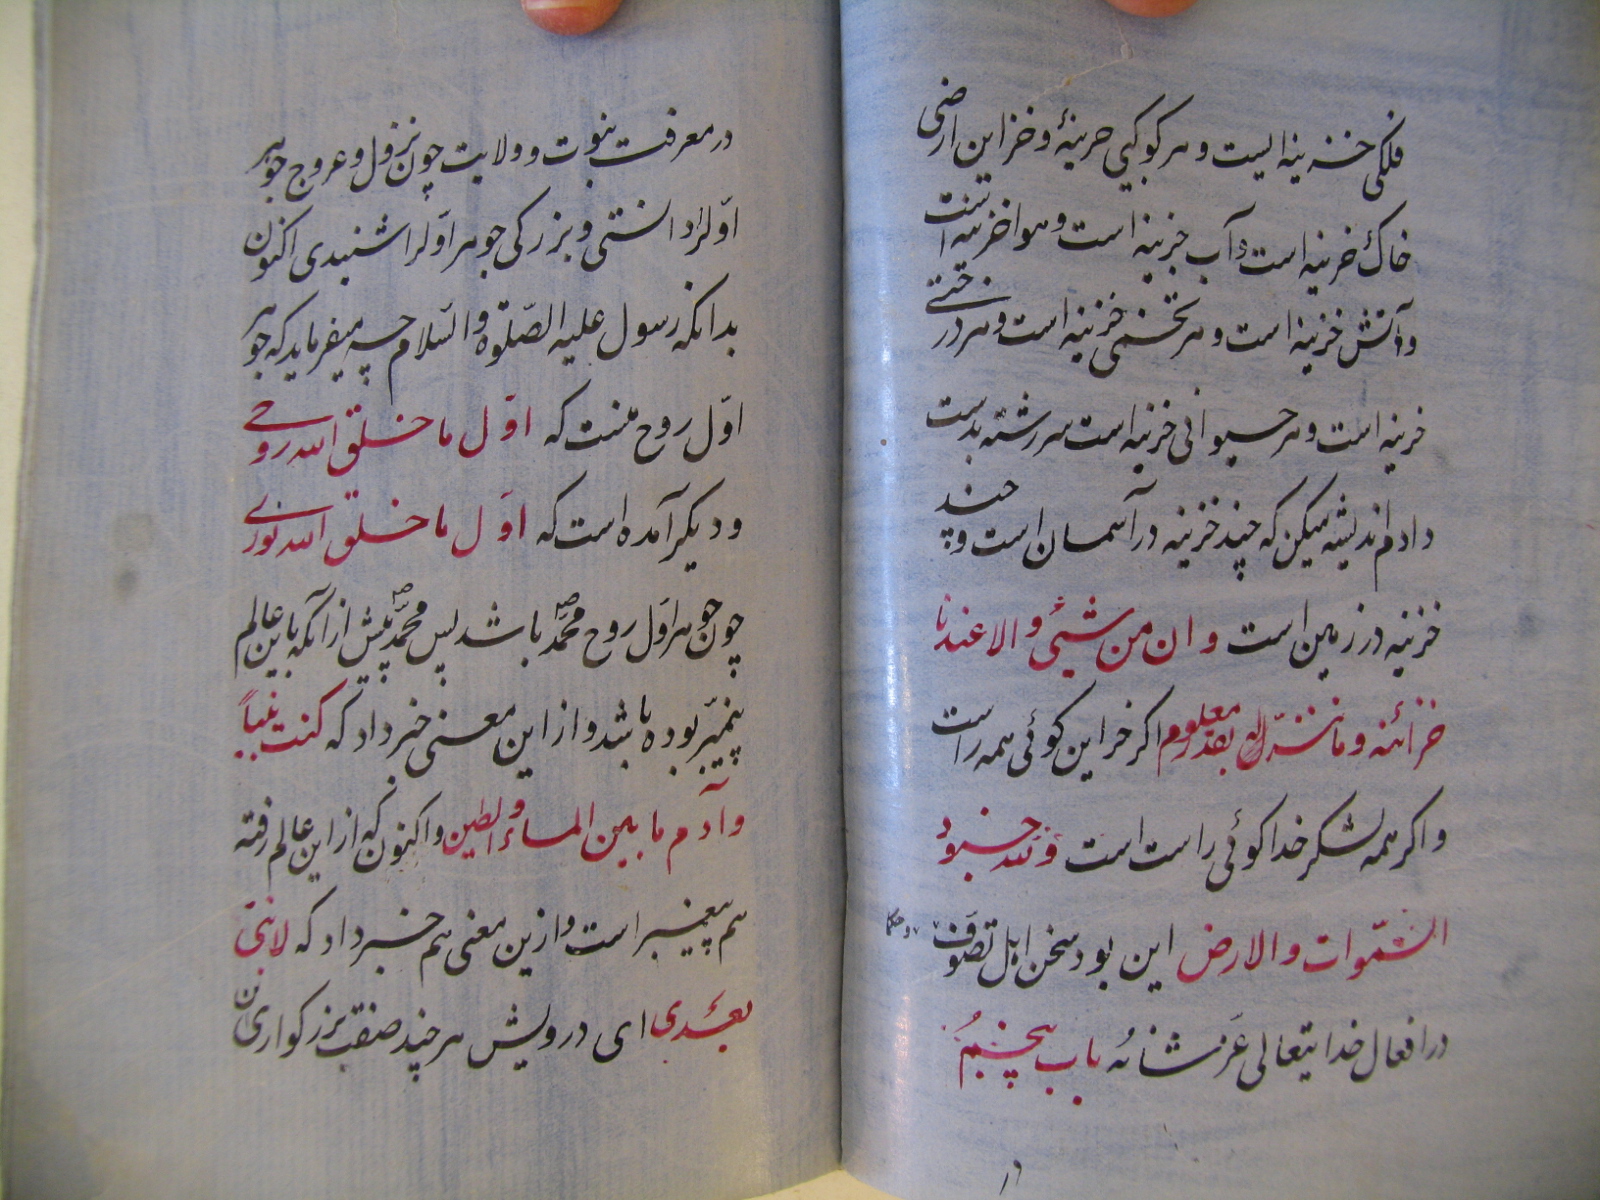 فلکی خزینه ایست و هر کوکبی خزینهٔ و خزاین ارضی
خاک خزینه است و آب خزینه است و هوا خزینه است
و آتش خزینه است و هر تخمی خزینه است و هر درختی
خزینه است و هر حیوانی خزینه است سر رشته بدست
دادم اندیشه میکن که چند خزینه در آسمان است و چند
خزینه در زمین است و ان من شیئی و الا عندنا
خزائنه و ما ننزله الا بقدر معلوم اکر خزاین کوئی همه راست
و اکر همه لشکر خدا کوئی راست است و لله جنود
السّموات و الارض این بود سخن اهل تصوّف و حکما
در افعال خدایتعالی عزّ شانهُ باب پنجم
در
در معرفت نبوت و ولایت چون نزول و عروج جوهر
اوّلرا دانستی و بزرکی جوهر اوّلرا شنیدی اکنون
بدانکه رسول علیه الصّلوة و السّلام چه میفرماید که جوهر
اوّل روح منست که اوّل ما خلق الله روحی
و دیکر آمده است که اوّل ما خلق الله نوری
چون جوهر اوّل روح محمّد ص باشد پس محمّد ص پیش از آنکه باین عالم
پیغمبر بوده باشد و از این معنی خبر داد که کنت نبیاً
و آدم ما بین الماء و الطین و اکنون که از این عالم رفته
هم پیغمبر است و ازین معنی هم خبر داد که لا نبی
بعدی ای درویش هر چند صفت بزرکواری آن